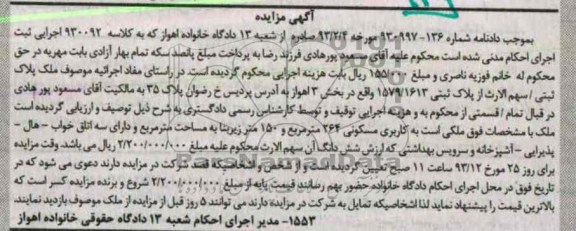 آگهی مزایده
بموجب دادنامه شماره ۱۳۶-۹۳۰۹۹۷ مورخه ۹۳/۲/۴ صادره از شعبه ۱۳ دادگاه خانواده اهواز که به کلاسه ۹۳۰۰۹۲ اجرایی ثبت
اجرای احکام مدنی شده است محکوم علیه آقای مسعود پورهادی فرزند رضا به پرداخت مبلغ پانصد سکه تمام بهار آزادی بابت مهریه در حق
محکوم له خانم فوزیه ناصری و مبلغ ۱۵۵/۰۰۰ ریال بابت هزینه اجرایی محکوم گردیده است. در راستای مفاد اجرائیه موصوف ملک پلاک
ثبتی / سهم الارث از پلاک ثبتی ۱۵۷۹/۱۶۱۳ واقع در بخش ۳ اهواز به آدرس پردیس خ رضوان پلاک ۳۵ به مالکیت آقای مسعود پور هادی
در قبال تمام / قسمتی از محکوم به و هزینه اجرایی توقیف و توسط کارشناس رسمی دادگستری به شرح ذیل توصیف و ارزیابی گردیده است
ملک با مشخصات فوق ملکی است به کاربری مسکونی ۲۶۴ مترمربع و ۱۵۰ متر زیربنا به مساحت مترمربع و دارای سه اتاق خواب - هال -
پذیرایی - آشپزخانه و سرویس بهداشتی که ارزش شش دانگ آن سهم الارث محکوم علیه مبلغ ۲/۲۰۰/۰۰۰/۰۰۰ ریال می باشد. وقت مزایده
برای روز ۲۵ مورخ ۹۳/۱۲ ساعت ۱۱ صبح تعیین گردیده است و از شخص و اشخاصیکه قصد شرکت در مزایده دارند دعوی می شود که در
تاریخ فوق در محل اجرای احکام دادگاه خانواده حضور بهم رسانند قیمت پایه از مبلغ ۲/۲۰۰/۰۰۰/۰۰۰ شروع و برنده مزایده کسر است که
بالاترین قیمت را پیشنهاد نماید لذا اشخاصیکه تمایل به شرکت در مزایده دارند می توانند ۵ روز قبل از مزایده از ملک موصوف بازدید نمایند.
۱۵۵۳- مدیر اجرای احکام شعبه ۱۳ دادگاه حقوقی خانواده اهواز
ParsNamadData